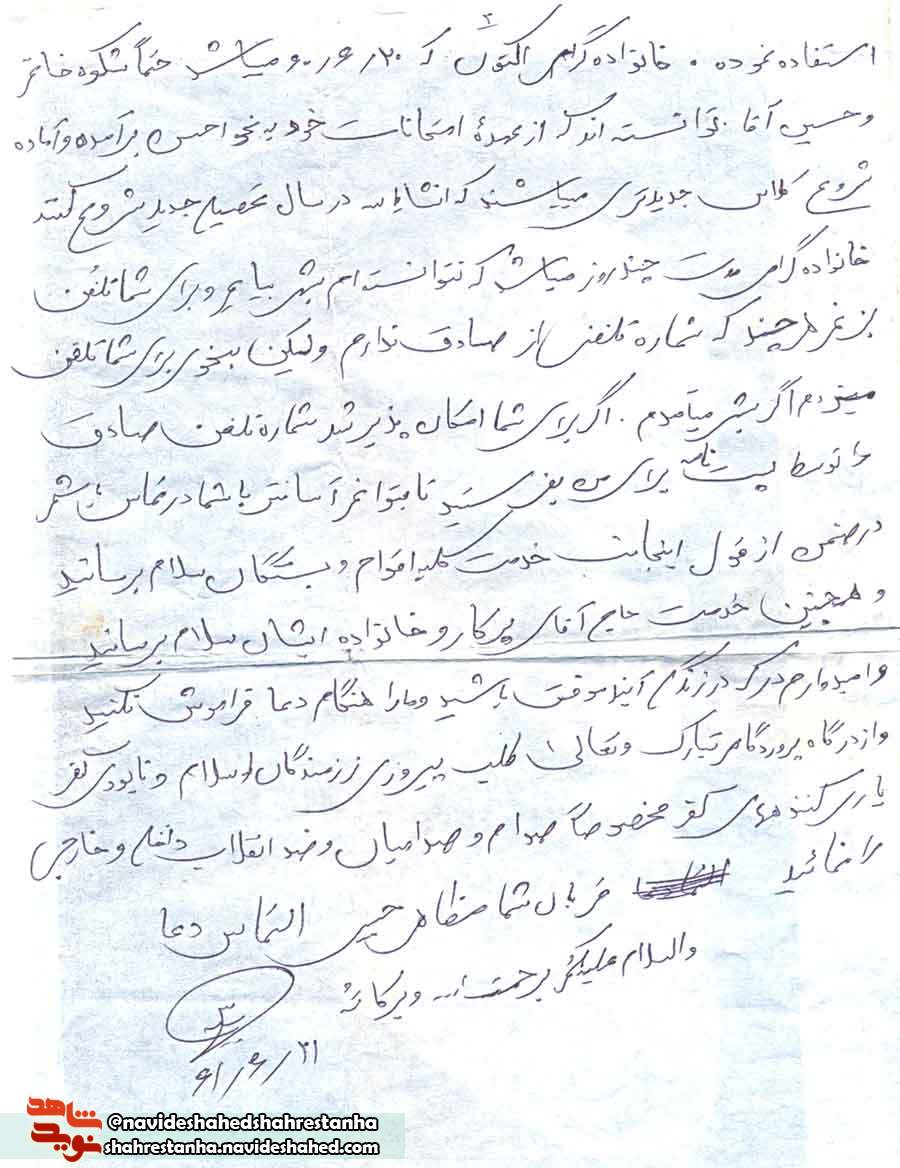 ۳
استفاده نموده . خانواده گرامی اکنون که ۲۰/۶/۶۰ میباشد حتماً شکوه خانم
و حسین آقا توانسته اند که از عهدهٔ امتحانات خود به نحو احسن برآمده و آماده
شروع کلاس جدیدتری میباشند که انشاءالله در سال تحصیلی جدید شروع کنند
خانواده گرامی مدت چند روز میباشد که نتوانسته ام بشهر بیایم و برای شما تلفن
بزنم هر چند که شماره تلفنی از صادق ندارم ولیکن بنحوی برای شما تلفن
میزدم اگر بشهر میآمدم . اگر برای شما امکان پذیر شد شماره تلفن صادق
را توسط پست نامه برای من بفرستید تا بتوانم آسانتر با شما در تماس باشم
در ضمن از قول اینجانب خدمت کلیه اقوام و بستگان سلام برسانید
و همچنین خدمت حاج آقای پرکار و خانواده ایشان سلام برسانید
و امیدوارم که در زندگی آینده موفق باشید و مارا هنگام دعا فراموش نکنید
و از درگاه پروردگار تبارک و تعالی طلب پیروزی رزمندگان اسلام و نابودی کفر
یاری کننده های کفر مخصوصاً صدام و صدامیان و ضد انقلاب داخلی و خارجی
را نمائید قربان شما حسین التماس دعا
والسلام علیکم برحمت الله و برکاته
۶۱/۶/۲۱
شاهد
نوید
©navideshahedshahrestanha
shahrestanha.navideshahed.com